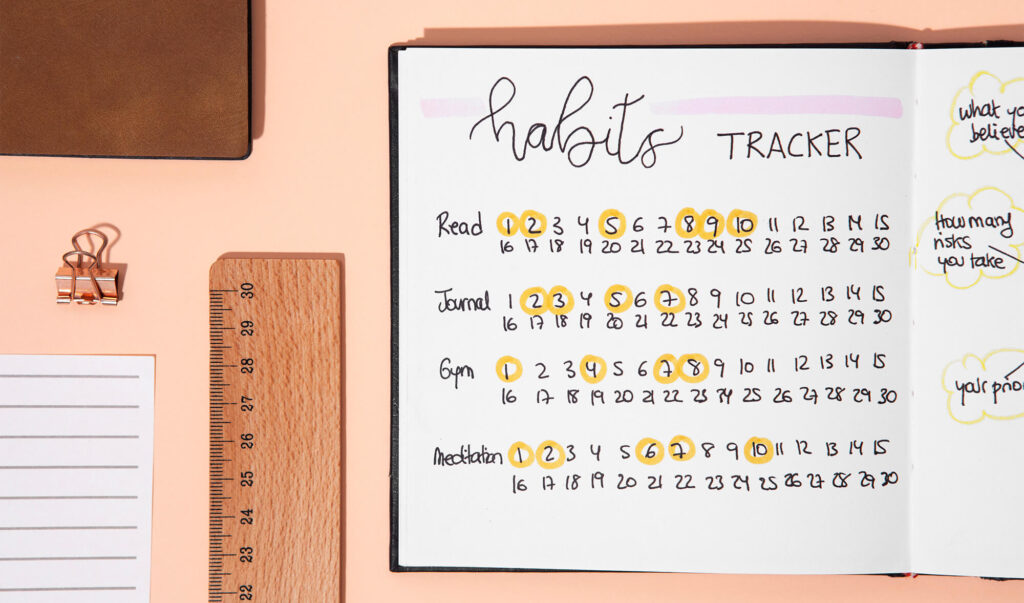 habits TRACKER
Read 1 2 3 4 5 6 7 8 9 10 11 12 13 14 15
16 17 18 19 20 21 22 23 24 25 26 27 28 29 30
Journal 1 2 3 4 5 6 7 8 9 10 11 12 13 14 15
16 17 18 19 20 21 22 23 24 25 26 27 28 29 30
Gym 1 2 3 4 5 6 7 8 9 10 11 12 13 14 15
16 17 18 19 20 21 22 23 24 25 26 27 28 29 30
Meditation 1 2 3 4 5 6 7 8 9 10 11 12 13 14 15
16 17 18 19 20 21 22 23 24 25 26 27 28 29 30
what
believe
How many
risks
you take
your
30
29
28
27
26
25
24
23
22